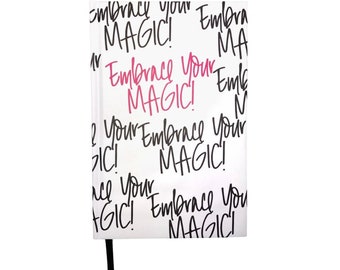 Embrace Your
MAGIC!
Embrace Your
MAGIC!
Embrace Your
MAGIC!
Embrace Your
MAGIC!
Embrace Your
MAGIC!
Embrace Your
MAGIC!